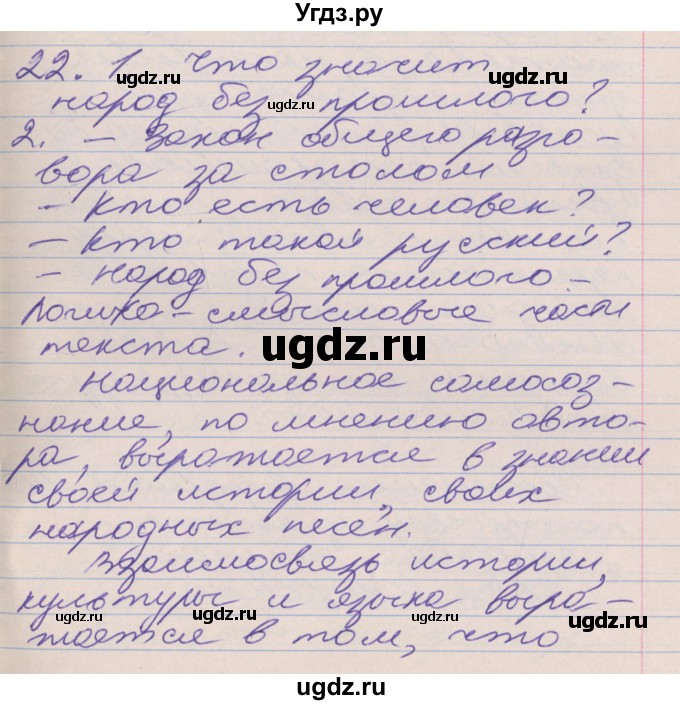 Угдз.ру
22. 1. Что значит
народ без прошлого?
2. – Закон общего разго-
вора за столом
– Кто есть человек?
– Кто такой русский?
– Народ без прошлого –
логико-смысловые части
текста.
Национальное самосоз-
нание, по мнению авто-
ра, выражается в знании
своей истории, своих
народных песен.
Взаимосвязь истории,
культуры и языка выра-
жается в том, что
ugdz.ru
ugdz.ru
ugdz.ru
ugdz.ru
ugdz.ru
ugdz.ru
ugdz.ru
ugdz.ru
ugdz.ru
ugdz.ru
ugdz.ru
ugdz.ru